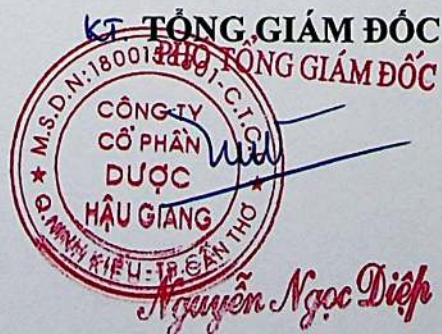 KT. TỔNG GIÁM ĐỐC
PHÓ TỔNG GIÁM ĐỐC
M.S.D.N:
C.T.C.P
CÔNG TY
CỔ PHẦN
DƯỢC
HẬU GIANG
Q. NINH KIỀU-TP. CẦN THƠ
Nguyễn Ngọc Diệp